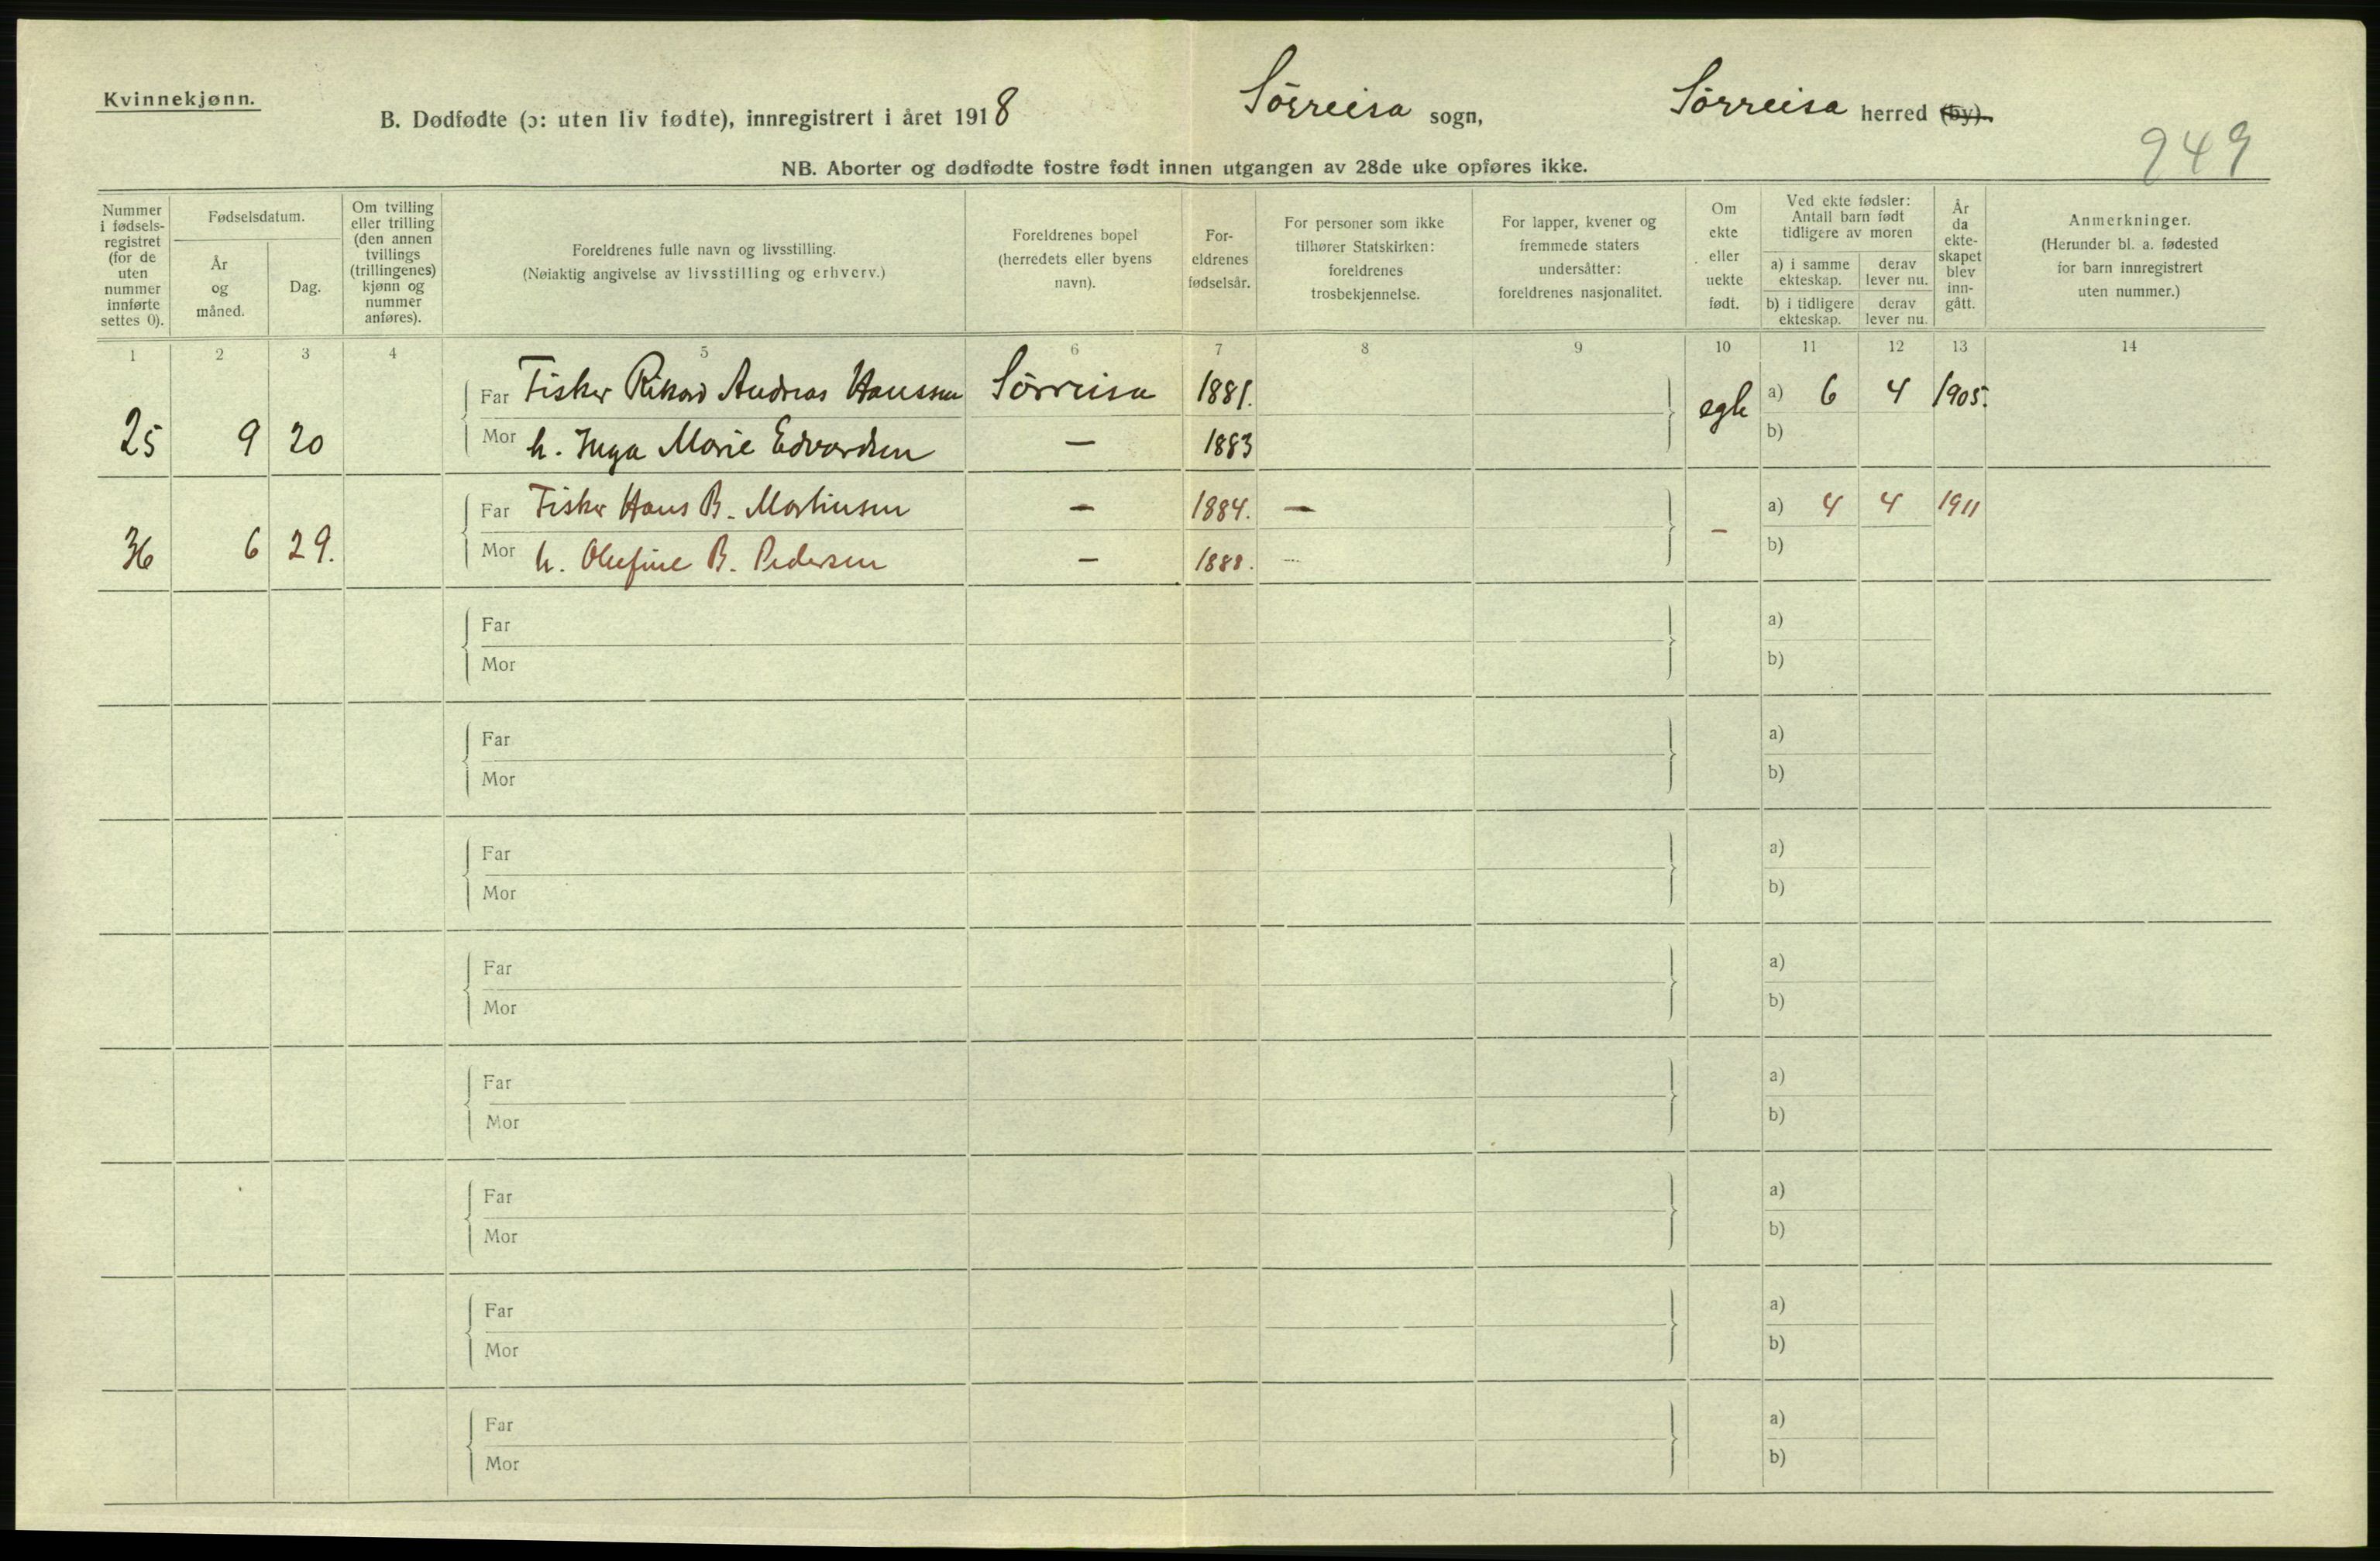 Kvinnekjønn.
B. Dødfødte (ɔ: uten liv fødte), innregistrert i året 1918 Sörreisa sogn, Sörreisa herred (by).
949
NB. Aborter og dødfødte fostre født innen utgangen av 28de uke opføres ikke.
Nummer i fødselsregistret (for de uten nummer innførte settes 0).
Fødselsdatum.
År og måned.
Dag.
Om tvilling eller trilling (den annen tvillings (trillingenes) kjønn og nummer anføres).
Foreldrenes fulle navn og livsstilling.
(Nøiaktig angivelse av livsstilling og erhverv.)
Foreldrenes bopel (herredets eller byens navn).
Foreldrenes fødselsår.
For personer som ikke tilhører Statskirken: foreldrenes trosbekjennelse.
For lapper, kvener og fremmede staters undersåtter: foreldrenes nasjonalitet.
Om ekte eller uekte født.
Ved ekte fødsler: Antall barn født tidligere av moren
a) i samme ekteskap.
derav lever nu.
b) i tidligere ekteskap.
derav lever nu.
År da ekteskapet blev inngått.
Anmerkninger.
(Herunder bl. a. fødested for barn innregistrert uten nummer.)
1 2 3 4 5 6 7 8 9 10 11 12 13 14
Far Fisker Rikard Andreas Hanssen Sörreisa 1881. a) 6 4 1905.
25 9 20 Mor h. Inga Marie Edvardsen — 1883 egte b)
Far Fisker Hans B. Martinsen — 1884. — a) 4 4 1911
36 6 29. Mor h. Olufine B. Pedersen — 1888. — — b)
Far a)
Mor b)
Far a)
Mor b)
Far a)
Mor b)
Far a)
Mor b)
Far a)
Mor b)
Far a)
Mor b)
Far a)
Mor b)
Far a)
Mor b)